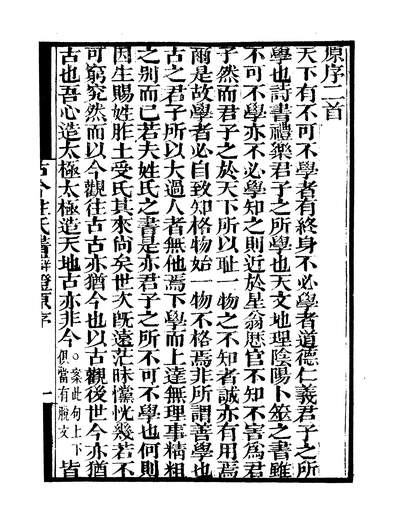 原序二首
天下有不可不學者有終身不必學者道德仁義君子之所
學也詩書禮樂君子之所學也天文地理陰陽卜筮之書雖
不可不學亦不必學知之則近於星翁厯官不知不害爲君
子然而君子之於天下所以耻一物之不知者誠亦有用焉
爾是故學者必自致知格物始一物不格焉非所謂善學也
古之君子所以大過人者無他焉下學而上達無理事精粗
之别而已若夫姓氏之書是亦君子之所不可不學也何則
因生賜姓胙土受氏其來尚矣世次旣遠茫昧懭恍幾若不
可窮究然而以今觀往古古亦猶今也以古觀後世今亦猶
古也吾心造太極太極造天地古亦非今○案此句上下俱當有脫文皆
古今姓氏書辯證原序
一